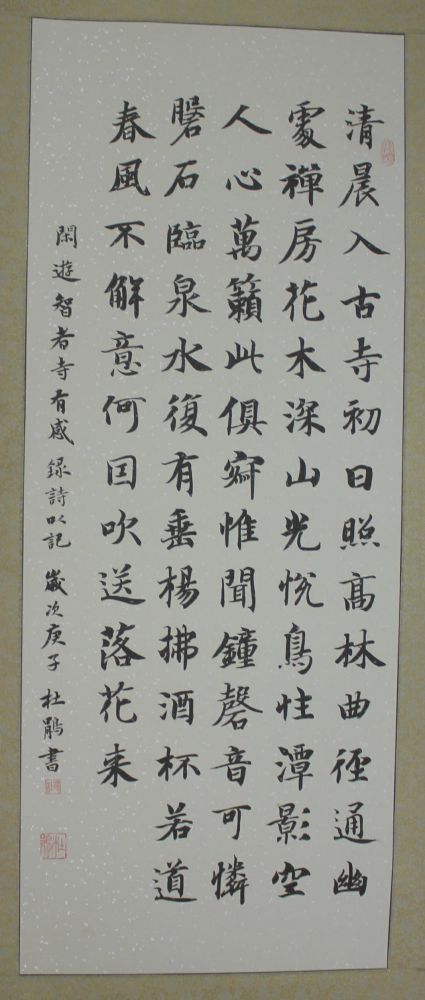 清晨入古寺初日照高林曲徑通幽
處禪房花木深山光悅鳥性潭影空
人心萬籟此俱寂惟聞鐘磬音可憐
磐石臨泉水復有垂楊拂酒杯若道
春風不解意何因吹送落花来
閑遊智者寺有感 錄詩以記 歲次庚子 杜鵑書